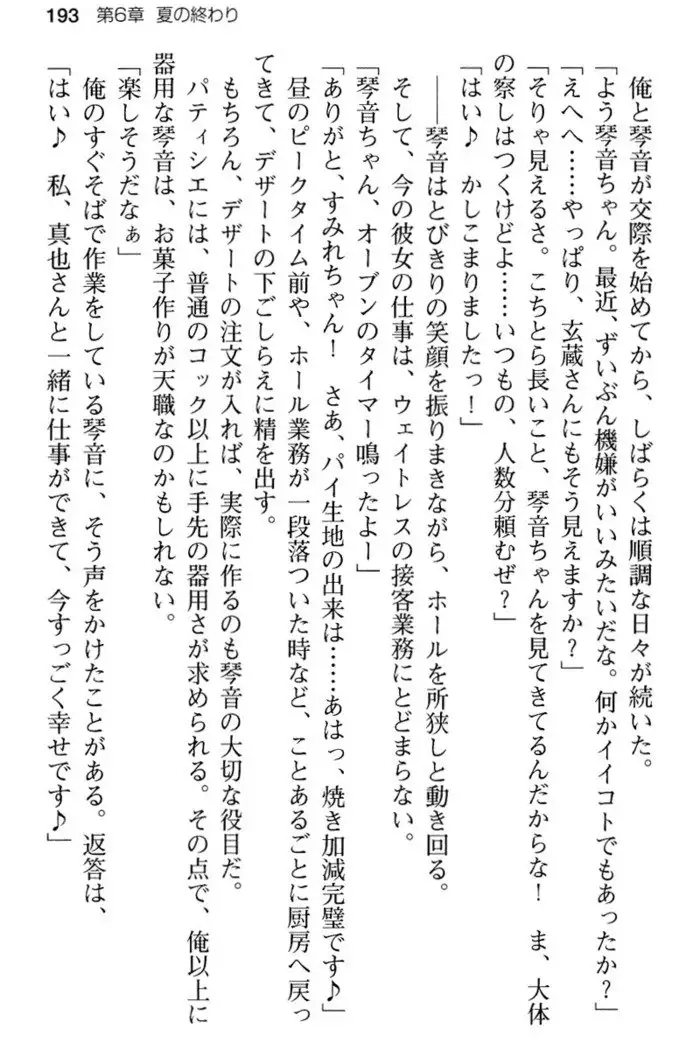 193 第6章 夏の終わり
俺と琴音が交際を始めてから、しばらくは順調な日々が続いた。
「よう琴音ちゃん。最近、ずいぶん機嫌がいいみたいだな。何かイイコトでもあったか?」
「えへへ……やっぱり、玄蔵さんにもそう見えますか?」
「そりゃ見えるさ。こちとら長いこと、琴音ちゃんを見てきてるんだからな! ま、大体
の察しはつくけどよ……いつもの、人数分頼むぜ?」
「はい♪ かしこまりましたっ!」
――琴音はとびきりの笑顔を振りまきながら、ホールを所狭しと動き回る。
そして、今の彼女の仕事は、ウェイトレスの接客業務にとどまらない。
「琴音ちゃん、オーブンのタイマー鳴ったよー」
「ありがと、すみれちゃん! さあ、パイ生地の出来は……あはっ、焼き加減完璧です♪」
昼のピークタイム前や、ホール業務が一段落ついた時など、ことあるごとに厨房へ戻っ
てきて、デザートの下ごしらえに精を出す。
もちろん、デザートの注文が入れば、実際に作るのも琴音の大切な役目だ。
パティシエには、普通のコック以上に手先の器用さが求められる。その点で、俺以上に
器用な琴音は、お菓子作りが天職なのかもしれない。
「楽しそうだなぁ」
俺のすぐそばで作業をしている琴音に、そう声をかけたことがある。返答は、
「はい♪ 私、真也さんと一緒に仕事ができて、今すっごく幸せです♪」